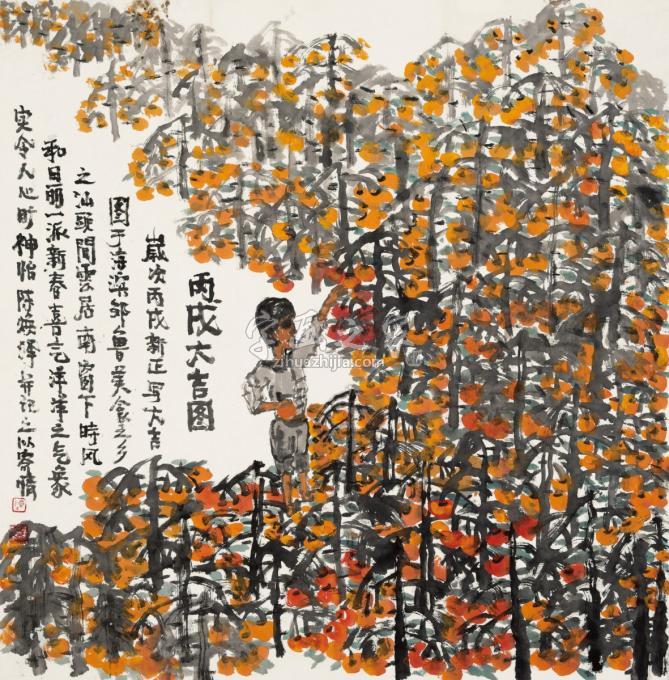 丙戌大吉图
岁次丙戌新正写大吉
图于海滨邹鲁美食之乡
之汕头闻云居南窗下时风
和日丽一派新春喜气洋洋之气象
实令人心旷神怡陈 泽并记之以寄情
字画之家
zihuazhijia.com